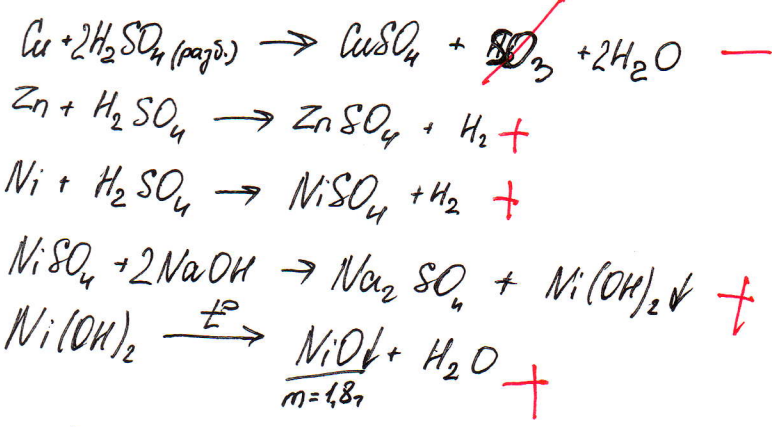 Cu + 2H₂SO₄ (разб.) → CuSO₄ + SO₃ + 2H₂O −
Zn + H₂SO₄ → ZnSO₄ + H₂ +
Ni + H₂SO₄ → NiSO₄ + H₂ +
NiSO₄ + 2NaOH → Na₂SO₄ + Ni(OH)₂↓ +
Ni(OH)₂ →t° NiO↓ + H₂O +
m = 1,8г